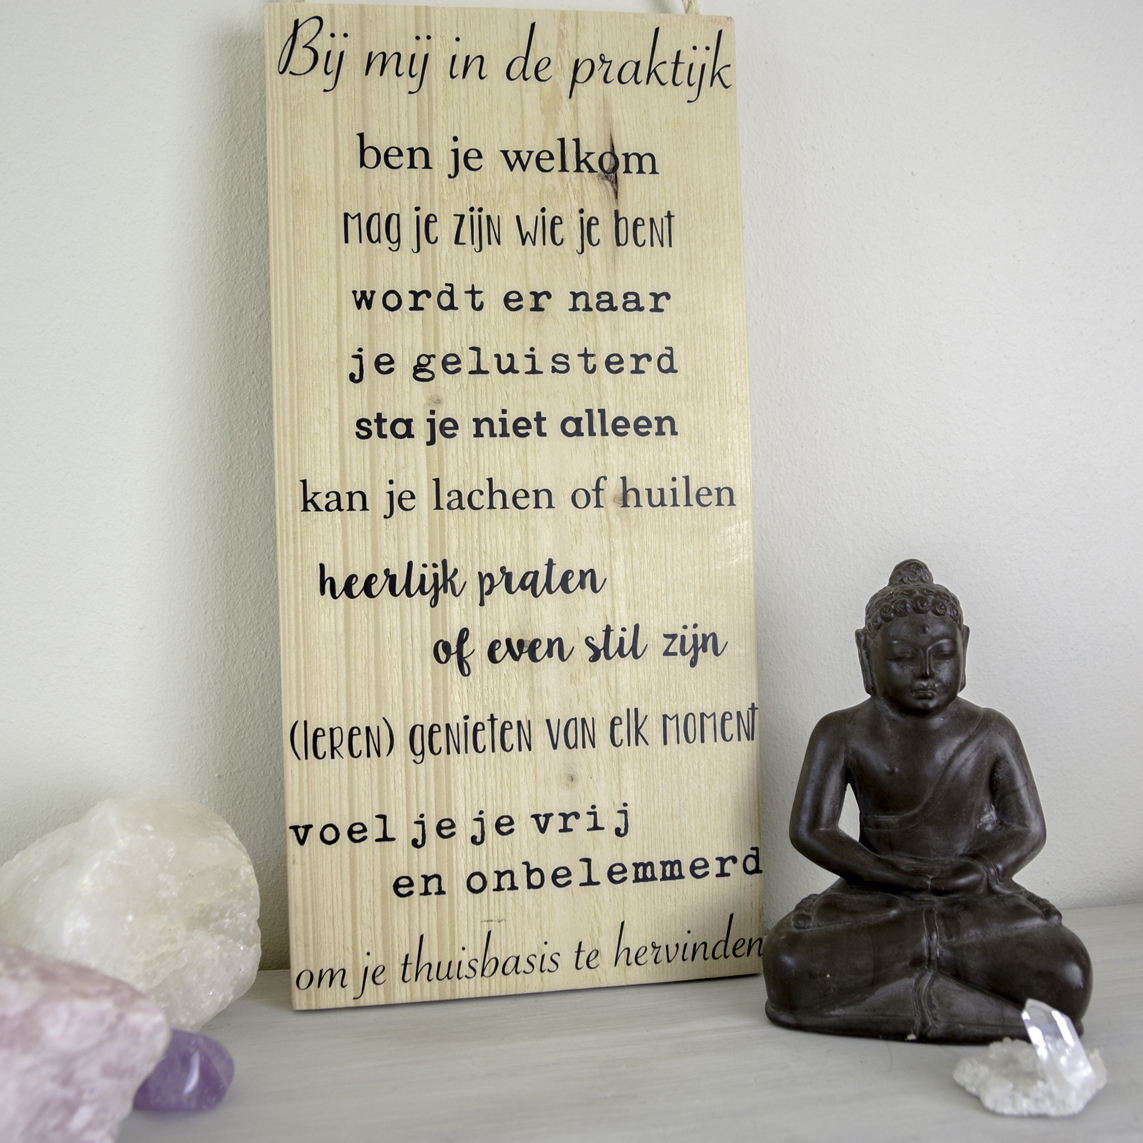 Bij mij in de praktijk
ben je welkom
mag je zijn wie je bent
wordt er naar
je geluisterd
sta je niet alleen
kan je lachen of huilen
heerlijk praten
of even stil zijn
(leren) genieten van elk moment
voel je je vrij
en onbelemmerd
om je thuisbasis te hervinden